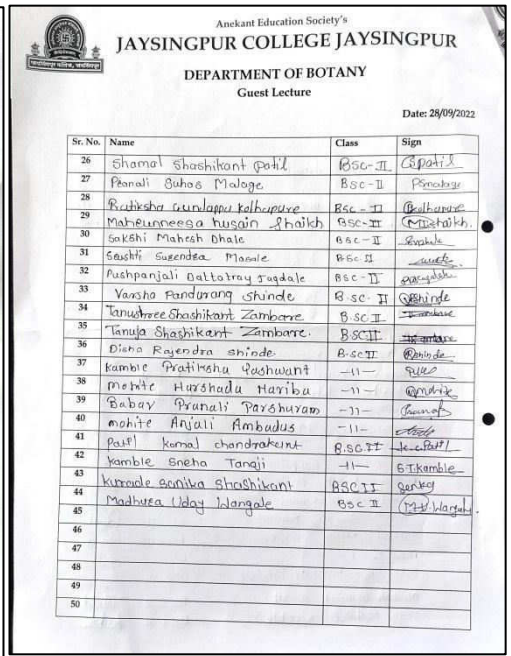 Anekant Education Society's
JAYSINGPUR COLLEGE JAYSINGPUR
DEPARTMENT OF BOTANY
Guest Lecture
Date: 28/09/2022
Sr. No. Name Class Sign
26 Shamal Shashikant Patil BSC-II Spatil
27 Pranali Suhas Malage BSC-II PSmalage
28 Rutiksha Gundappa Kolhapure BSC-II Rkolhapure
29 Maheunneesa husain Shaikh BSC-II MIshaikh.
30 Sakshi Mahesh Bhale BSC-II
31 Srushti Surendra Masale B.SC.II
32 Pushpanjali Dattatray Jagdale BSC-II
33 Varsha Pandurang Shinde B.SC-II Shinde
34 Tanushree Shashikant Zambare B.SC II
35 Tanuja Shashikant Zambare. B.SC II
36 Disha Rajendra shinde B.SC II Shinde
37 kamble Pratiksha Yashwant -11-
38 mohite Harshada Hariba -11-
39 Babar Pranali Parshuram -11-
40 mohite Anjali Ambadas -11-
41 Patil komal chandrakant B.SC.II k.c.Patil
42 kamble Sneha Tanaji -11- S.T.kamble
43 Sanika Shashikant BSC II
44 Madhura Uday Wangale BSC II
45
46
47
48
49
50